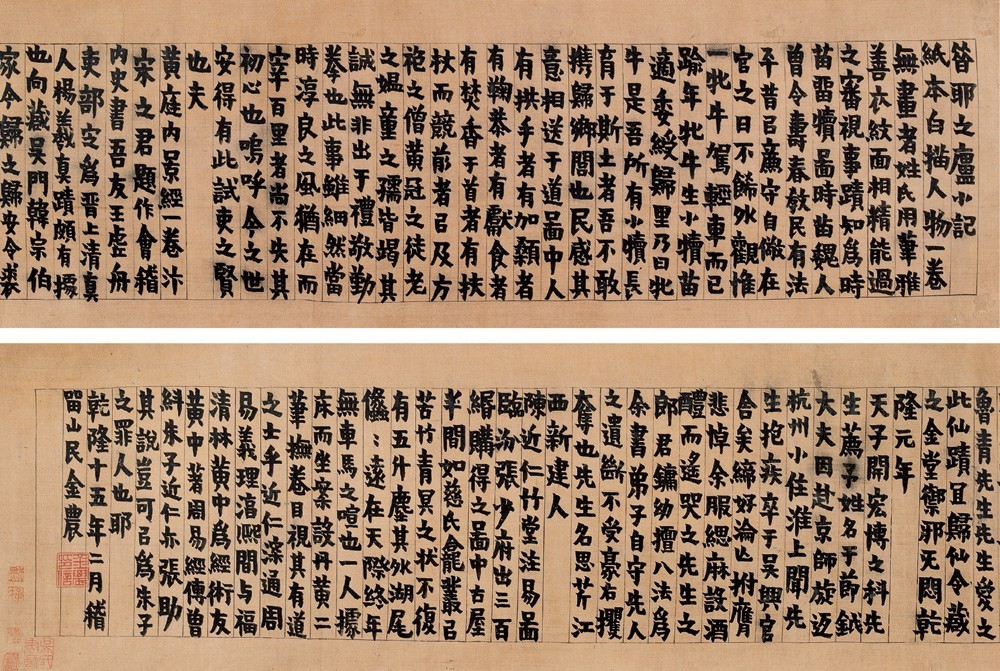 昝耶之廬小記
紙本白描人物一卷
無畫者姓氏用筆雅
善衣紋面相精能過
之審視事蹟知為時
苗畱犢啚時苗魏人
曾令壽春敎民有法
平昔㠯廉守自儆在
官之日不餙外觀惟
一牝牛駕輕車而已
踰年牝牛生小犢苗
適委綬歸里乃曰牝
牛是吾所有小犢長
育于斯土者吾不敢
携歸鄉閭也民感其
意相送于道啚中人
有拱手者有加額者
有鞠恭者有獻食者
有焚香于首者有扶
杖而競前者㠯及方
袍之僧黃冠之徒老
之媼童之孺皆竭其
誠無非出于禮敬勤
拳也此事雖細然當
時淳良之風猶在而
宰百里者尚不失其
初心也嗚呼今之世
安得有此試吏之賢
也夫
黃庭內景經一卷汴
宋之君題作會稽
內史書吾友王虛舟
吏部定爲晉上清真
人楊羲真蹟頗有據
也向藏吳門韓宗伯
家今歸之歸安令裘
魯青先生先生愛之
此仙蹟且歸仙令藏
之金堂禦邪无悶乾
隆元年
天子開宏博之科先
生薦予姓名于節鉞
大夫因赴京師旋返
杭州小住淮上聞先
生抱疾卒于吳興官
舍矣締好淪亾拊膺
悲悼余服緦麻設酒
醴而遙哭之先生之
郎君鏞幼擅八法爲
余書弟子自守先人
之遺斷不受豪右攫
奪也先生名思芹江
西新建人
陳近仁竹堂注易啚
臨汾張少府出三百
緡購得之啚中古屋
半間如慈氏龕叢㠯
苦竹青冥之狀不復
有五什塵其外湖尾
儵〻遠在天際終年
無車馬之喧也一人據
床而坐案設丹黃二
筆撫卷目視其有道
之士乎近仁深通周
易義理淯熙間與福
清林黃中爲經術友
黃中著周易經傳曾
糾朱子近仁亦張助
其說豈可㠯爲朱子
之罪人也耶
乾隆十五年二月稽
畱山民金農